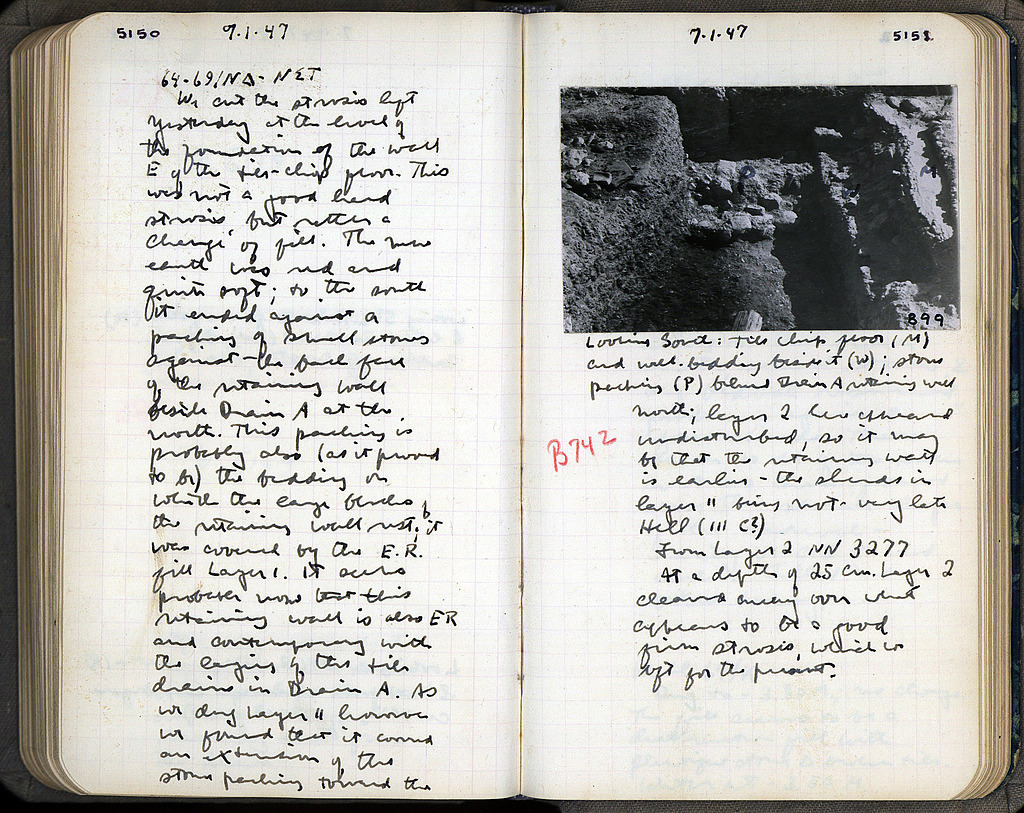 5150
7·1·47
64-69/ΝΔ-ΝΣΤ
We cut the strosis left
yesterday at the level of
the foundation of the wall
E of the tile-chip floor. This
was not a good hard
strosis, but rather a
change of fill. The new
earth was red and
quite soft; to the south
it ended against a
packing of small stones
against the back face
of the retaining wall
beside Drain A at the
north. This packing is
probably also (as it proved
to be) the bedding on
which the large blocks of
the retaining wall rest; it
was covered by the E.R.
fill Layer 1. It seems
probable now that this
retaining wall is also ER
and contemporary with
the laying of the tile
drains in Drain A. As
we dug Layer 11 however
we found that it covered
an extension of this
stone packing toward the
7·1·47
5151
899
Looking South: tile chip floor (M)
and wall-bedding beside it (W); stone
packing (P) behind Drain A retaining wall
B742
north; layer 2 here appeared
undisturbed, so it may
be that the retaining wall
is earlier - the sherds in
layer 11 being not very late
Hell (III C?)
From Layer 2 NN 3277
At a depth of 25 cm. Layer 2
cleared away over what
appears to be a good
firm strosis, which is
left for the present.